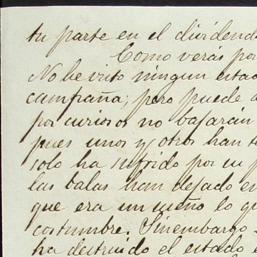 tu parte en el dividend
Como verás por
No he visto ningun estad
campaña; pero puede a
por curiosos no bajarán
pues unos y otros han t
solo ha sufrido por su p
las balas han dejado en
que era un sueño lo qu
costumbre. Sinembargo
ha destruido el estado e